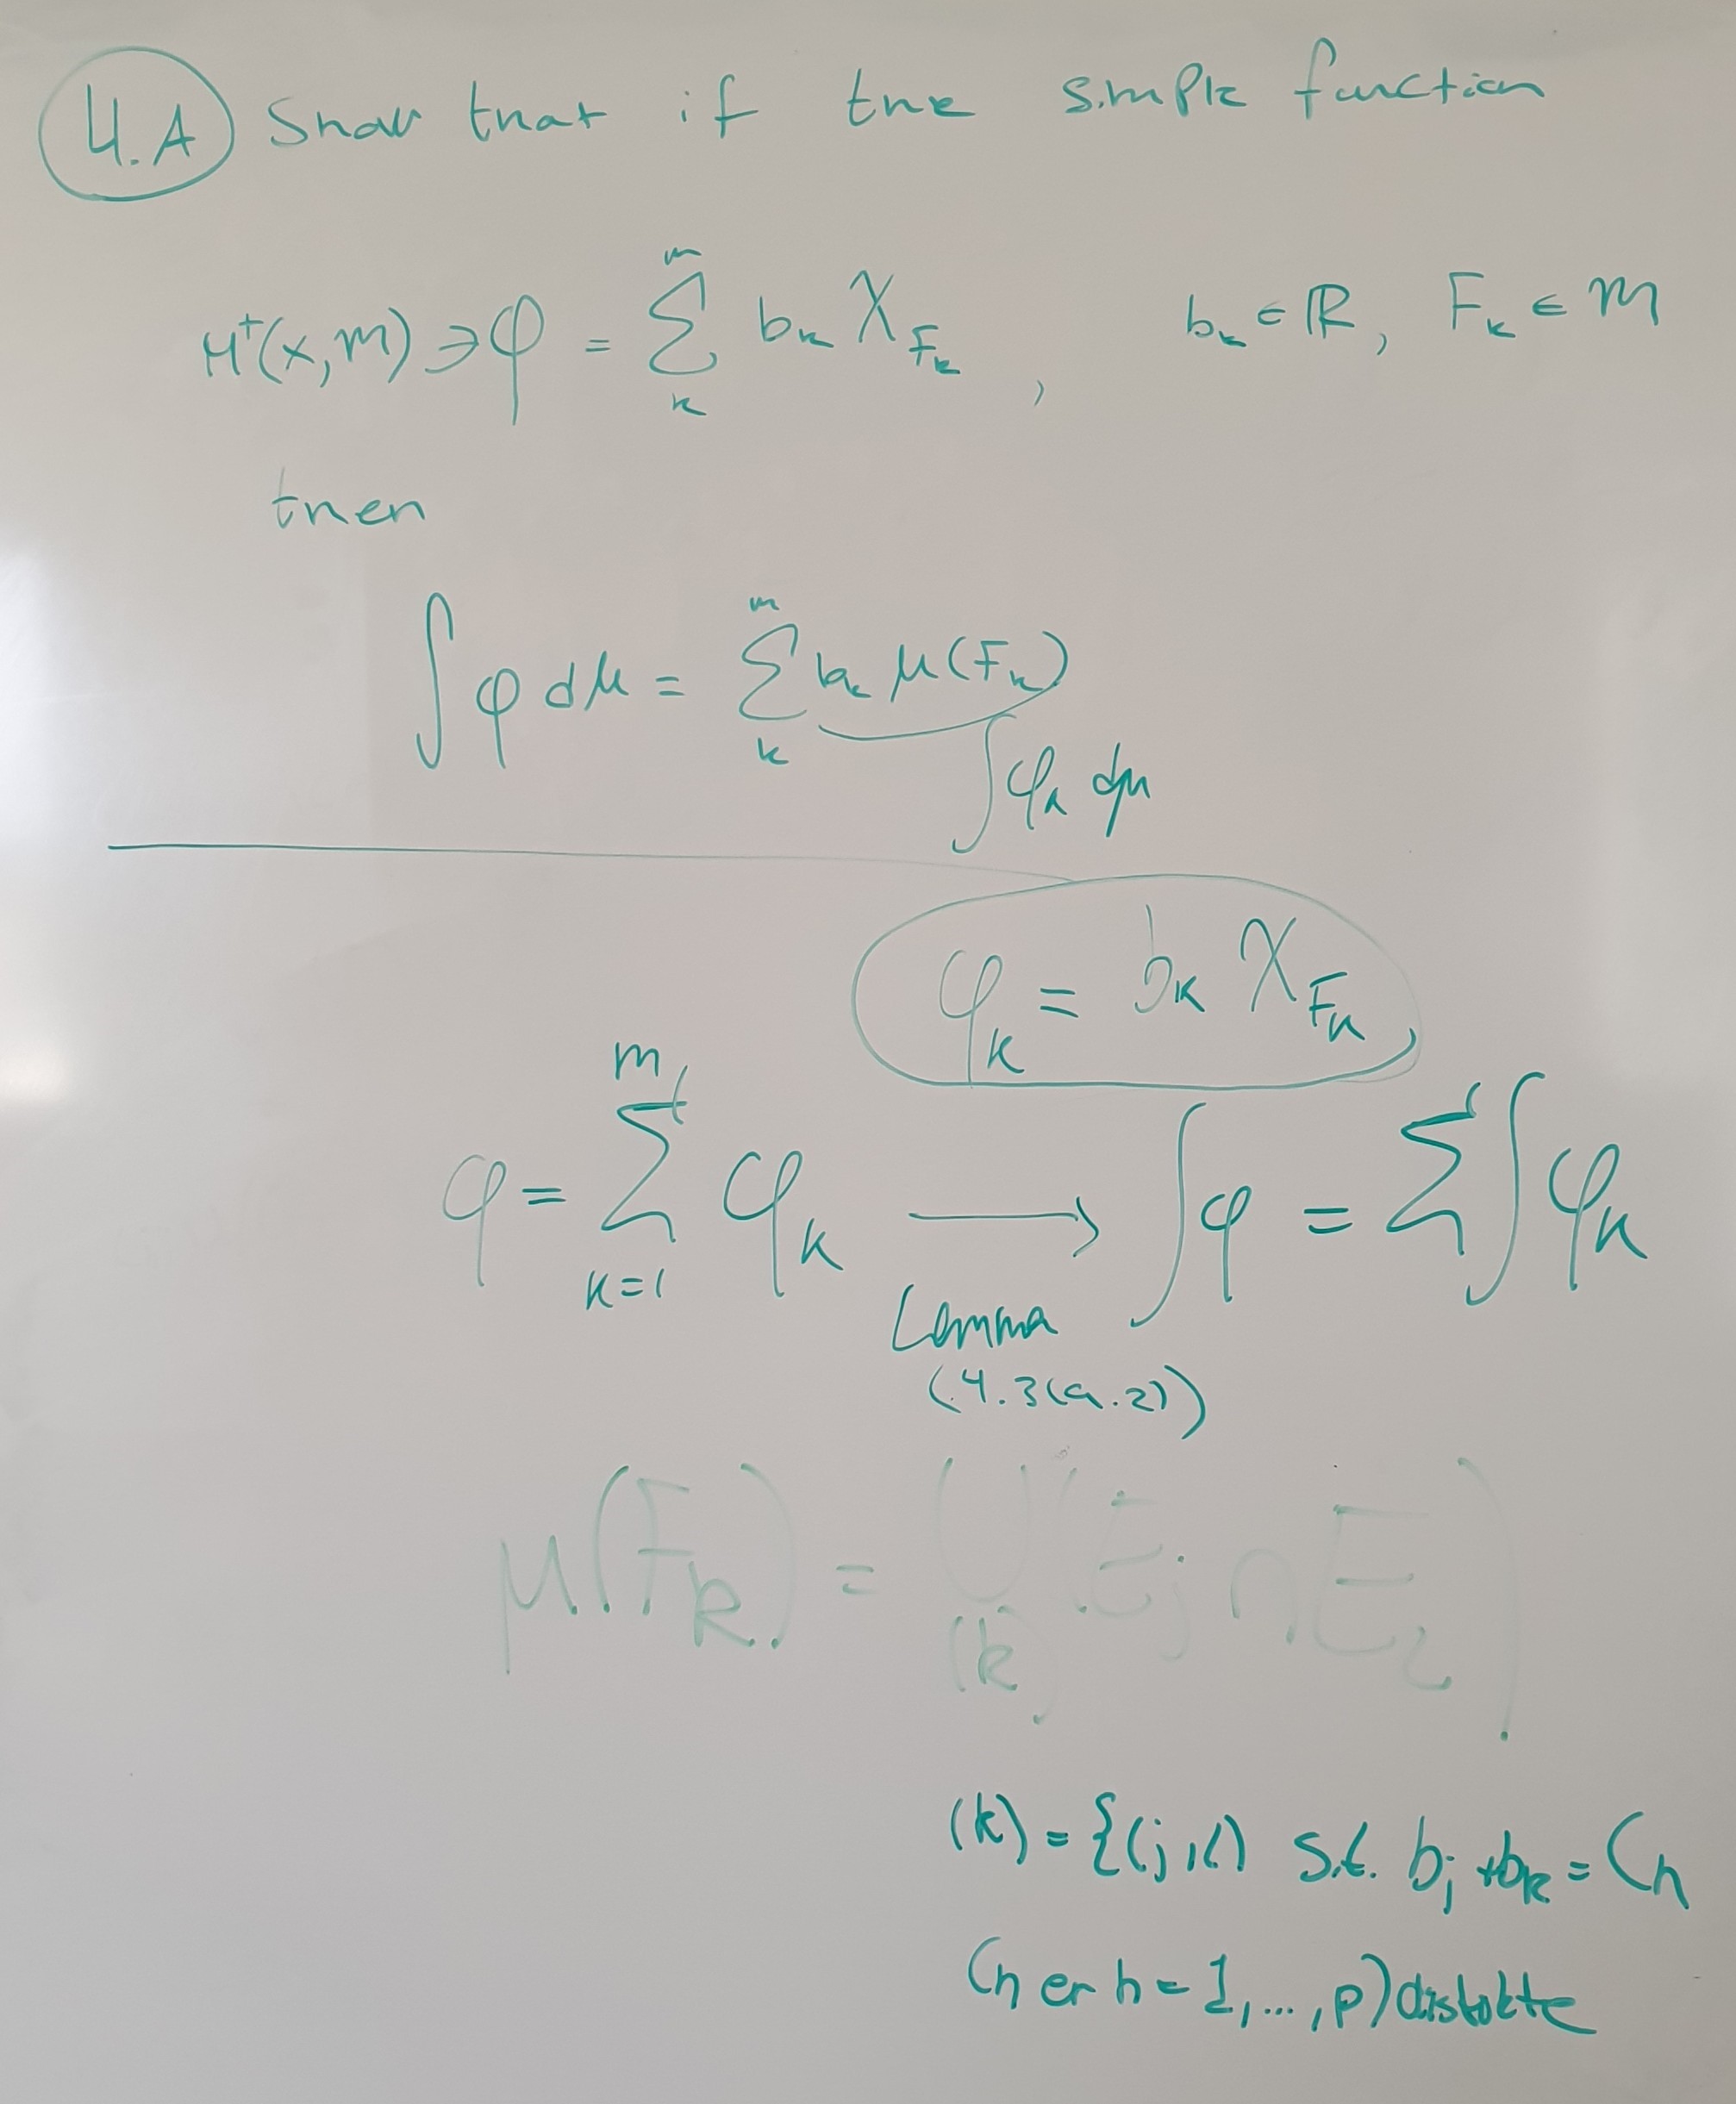 4.A Show that if the simple function
M⁺(X,M) ∋ φ = Σ_k^m b_k χ_{F_k} , b_k ∈ ℝ, F_k ∈ M
then
∫ φ dμ = Σ_k^m b_k μ(F_k)
∫ φ_k dμ
φ_k = b_k χ_{F_k}
φ = Σ_{k=1}^m φ_k ⟶ ∫ φ = Σ ∫ φ_k
Lemma
(4.3(a.2))
μ(F_k) = ⋃_{(k)} E_j ∩ E_2)
(k) = {(j,l) s.t. b_j + b_k = C_h
C_h er h = 1, ..., p)